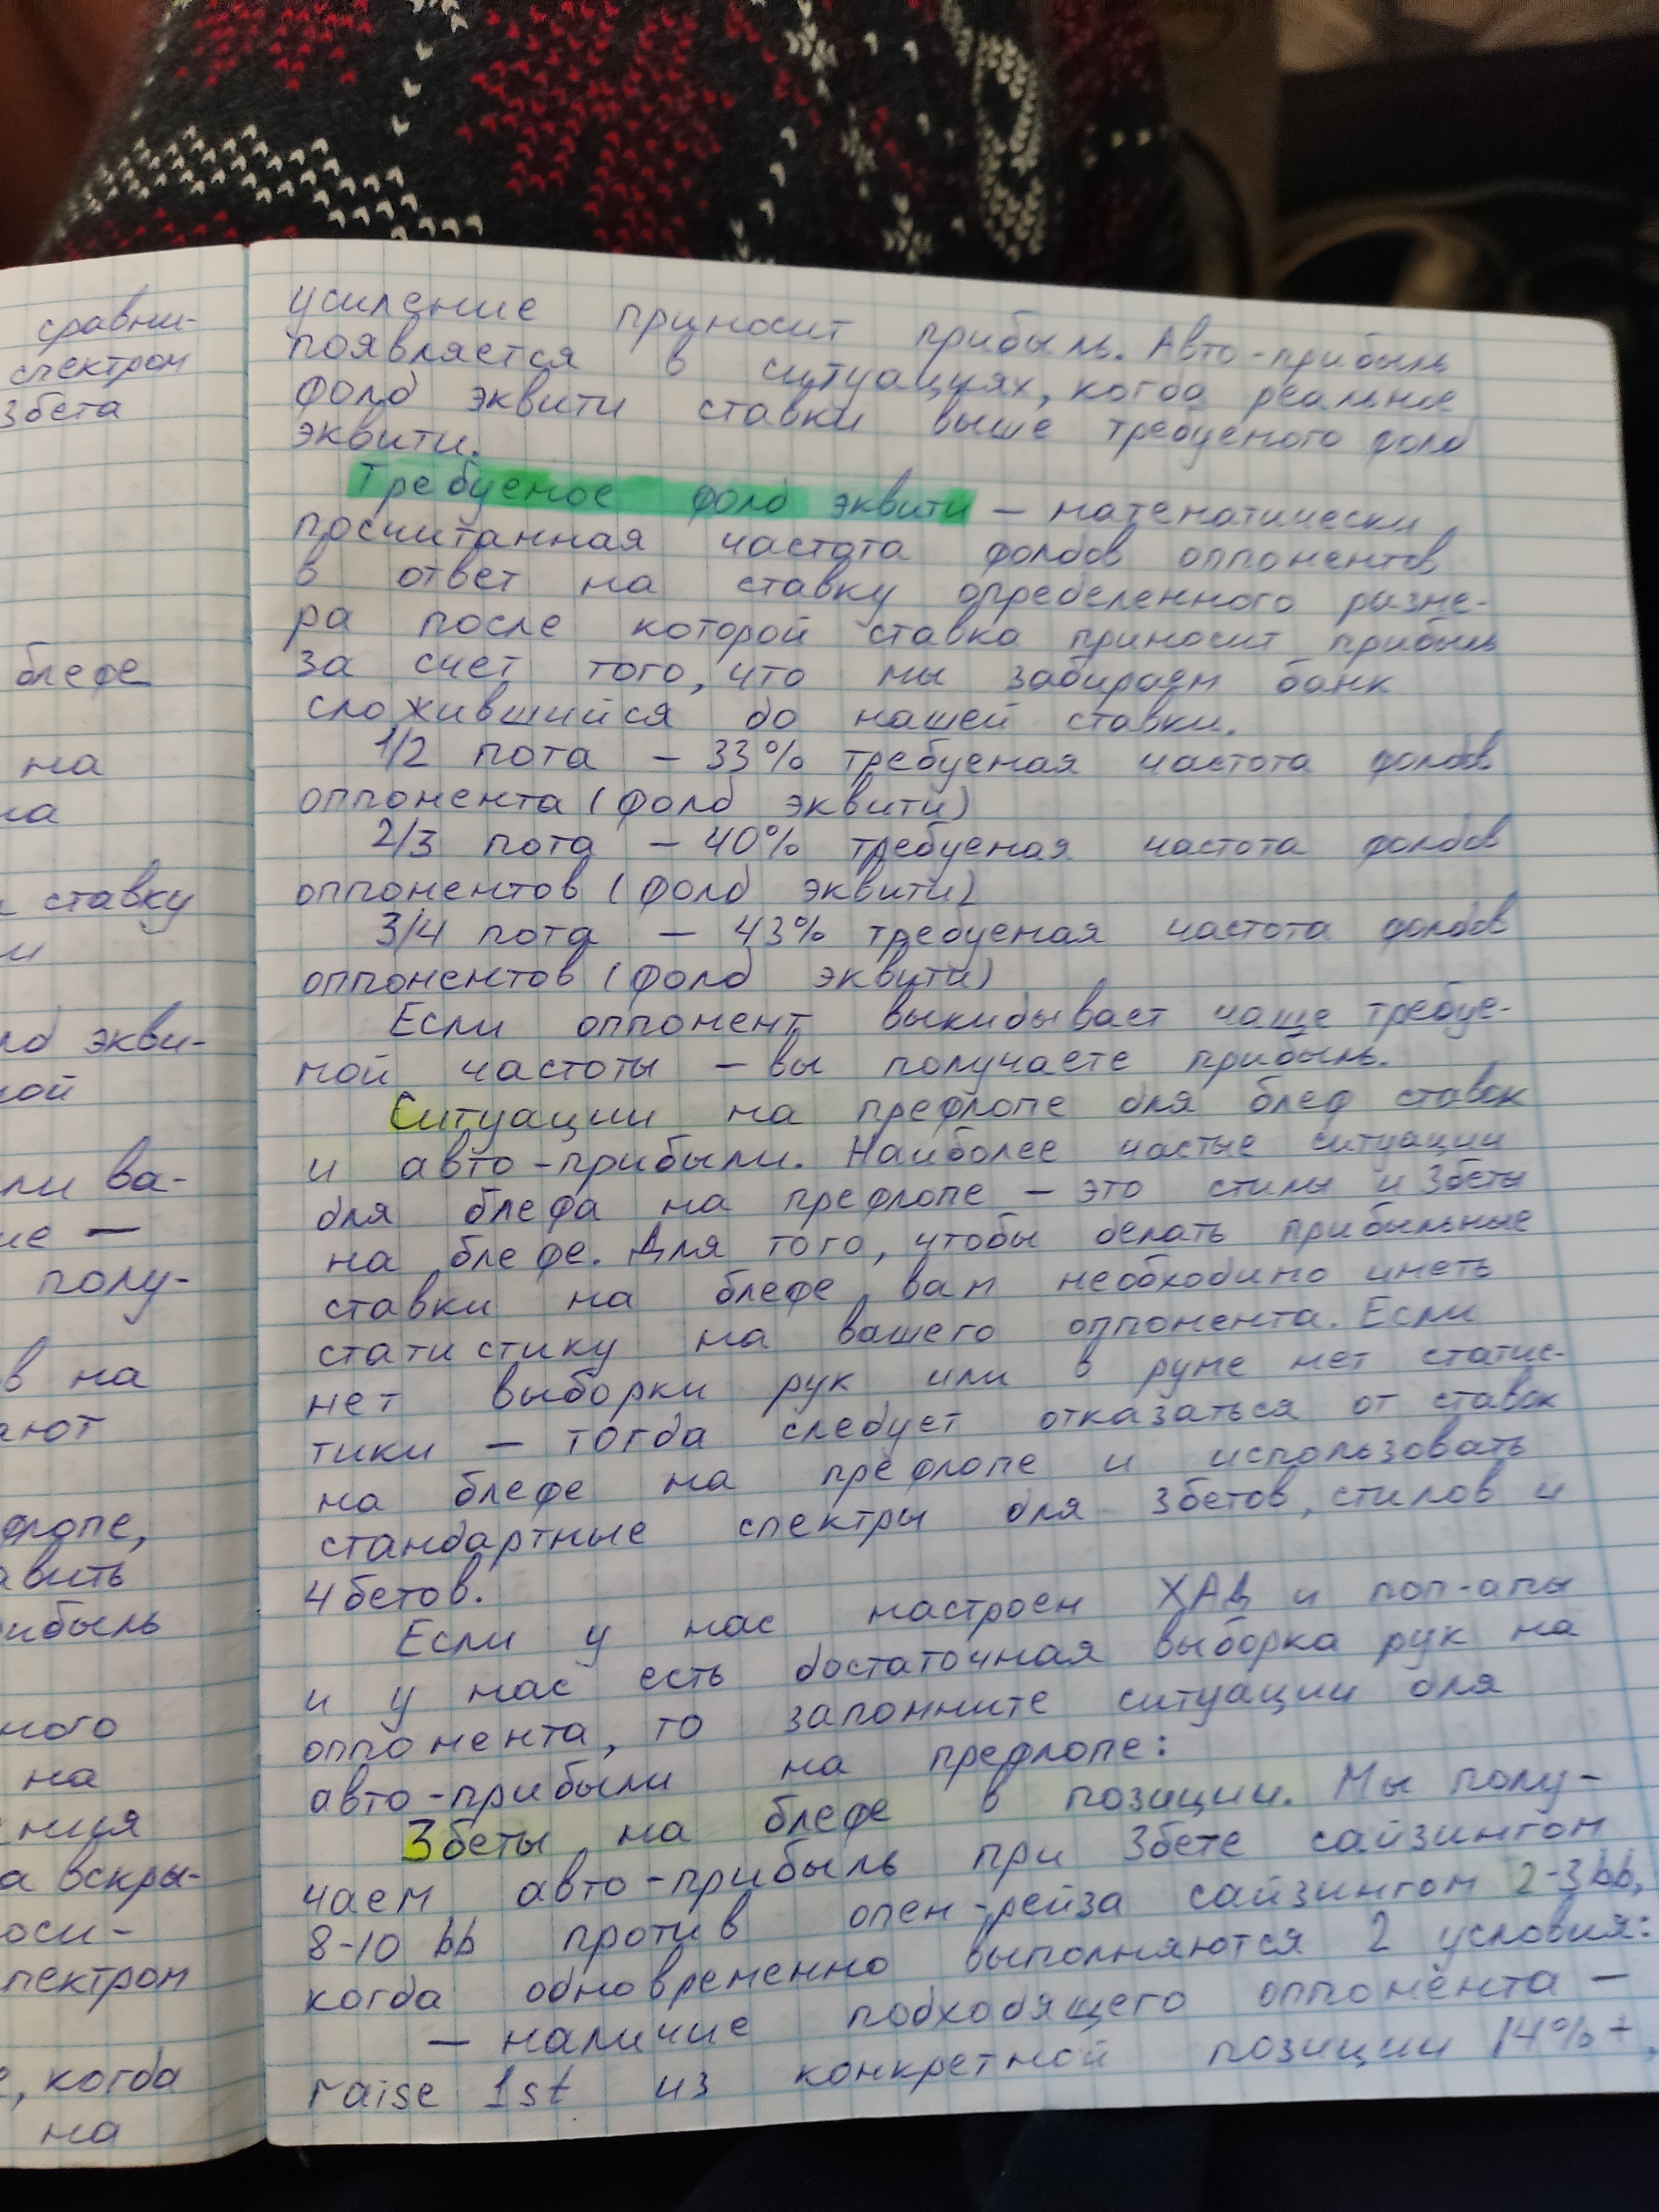 сравни-
спектром
3бета
блефе
на
на
ставку
и
лд экви-
ной
ли ва-
ие —
полу-
в на
ают
флопе,
авить
рибыль
ного
на
ния
а вскры-
оси-
пектром
е, когда
на
усиление приносит прибыль. Авто-прибыль
появляется в ситуациях, когда реальное
фолд эквити ставки выше требуемого фолд
эквити.
Требуемое фолд эквити – математически
посчитанная частота фолдов оппонентов
в ответ на ставку определенного разме-
ра после которой ставка приносит прибыль
за счет того, что мы забираем банк
сложившийся до нашей ставки.
1/2 пота – 33% требуемая частота фолдов
оппонента (фолд эквити)
2/3 пота – 40% требуемая частота фолдов
оппонентов (фолд эквити)
3/4 пота – 43% требуемая частота фолдов
оппонентов (фолд эквити)
Если оппонент выкидывает чаще требуе-
мой частоты – вы получаете прибыль.
Ситуации на префлопе для блеф ставок
и авто-прибыли. Наиболее частые ситуации
для блефа на префлопе – это стилы и 3беты
на блефе. Для того, чтобы делать прибыльные
ставки на блефе вам необходимо иметь
статистику на вашего оппонента. Если
нет выборки рук или в руме нет статис-
тики – тогда следует отказаться от ставок
на блефе на префлопе и использовать
стандартные спектры для 3бетов, стилов и
4бетов.
Если у нас настроен ХАД и поп-апы
и у нас есть достаточная выборка рук на
оппонента, то запомните ситуации для
авто-прибыли на префлопе:
3беты на блефе в позиции. Мы полу-
чаем авто-прибыль при 3бете сайзингом
8-10 bb против опен-рейза сайзингом 2-3bb,
когда одновременно выполняются 2 условия:
– наличие подходящего оппонента –
raise 1st из конкретной позиции 14%+,